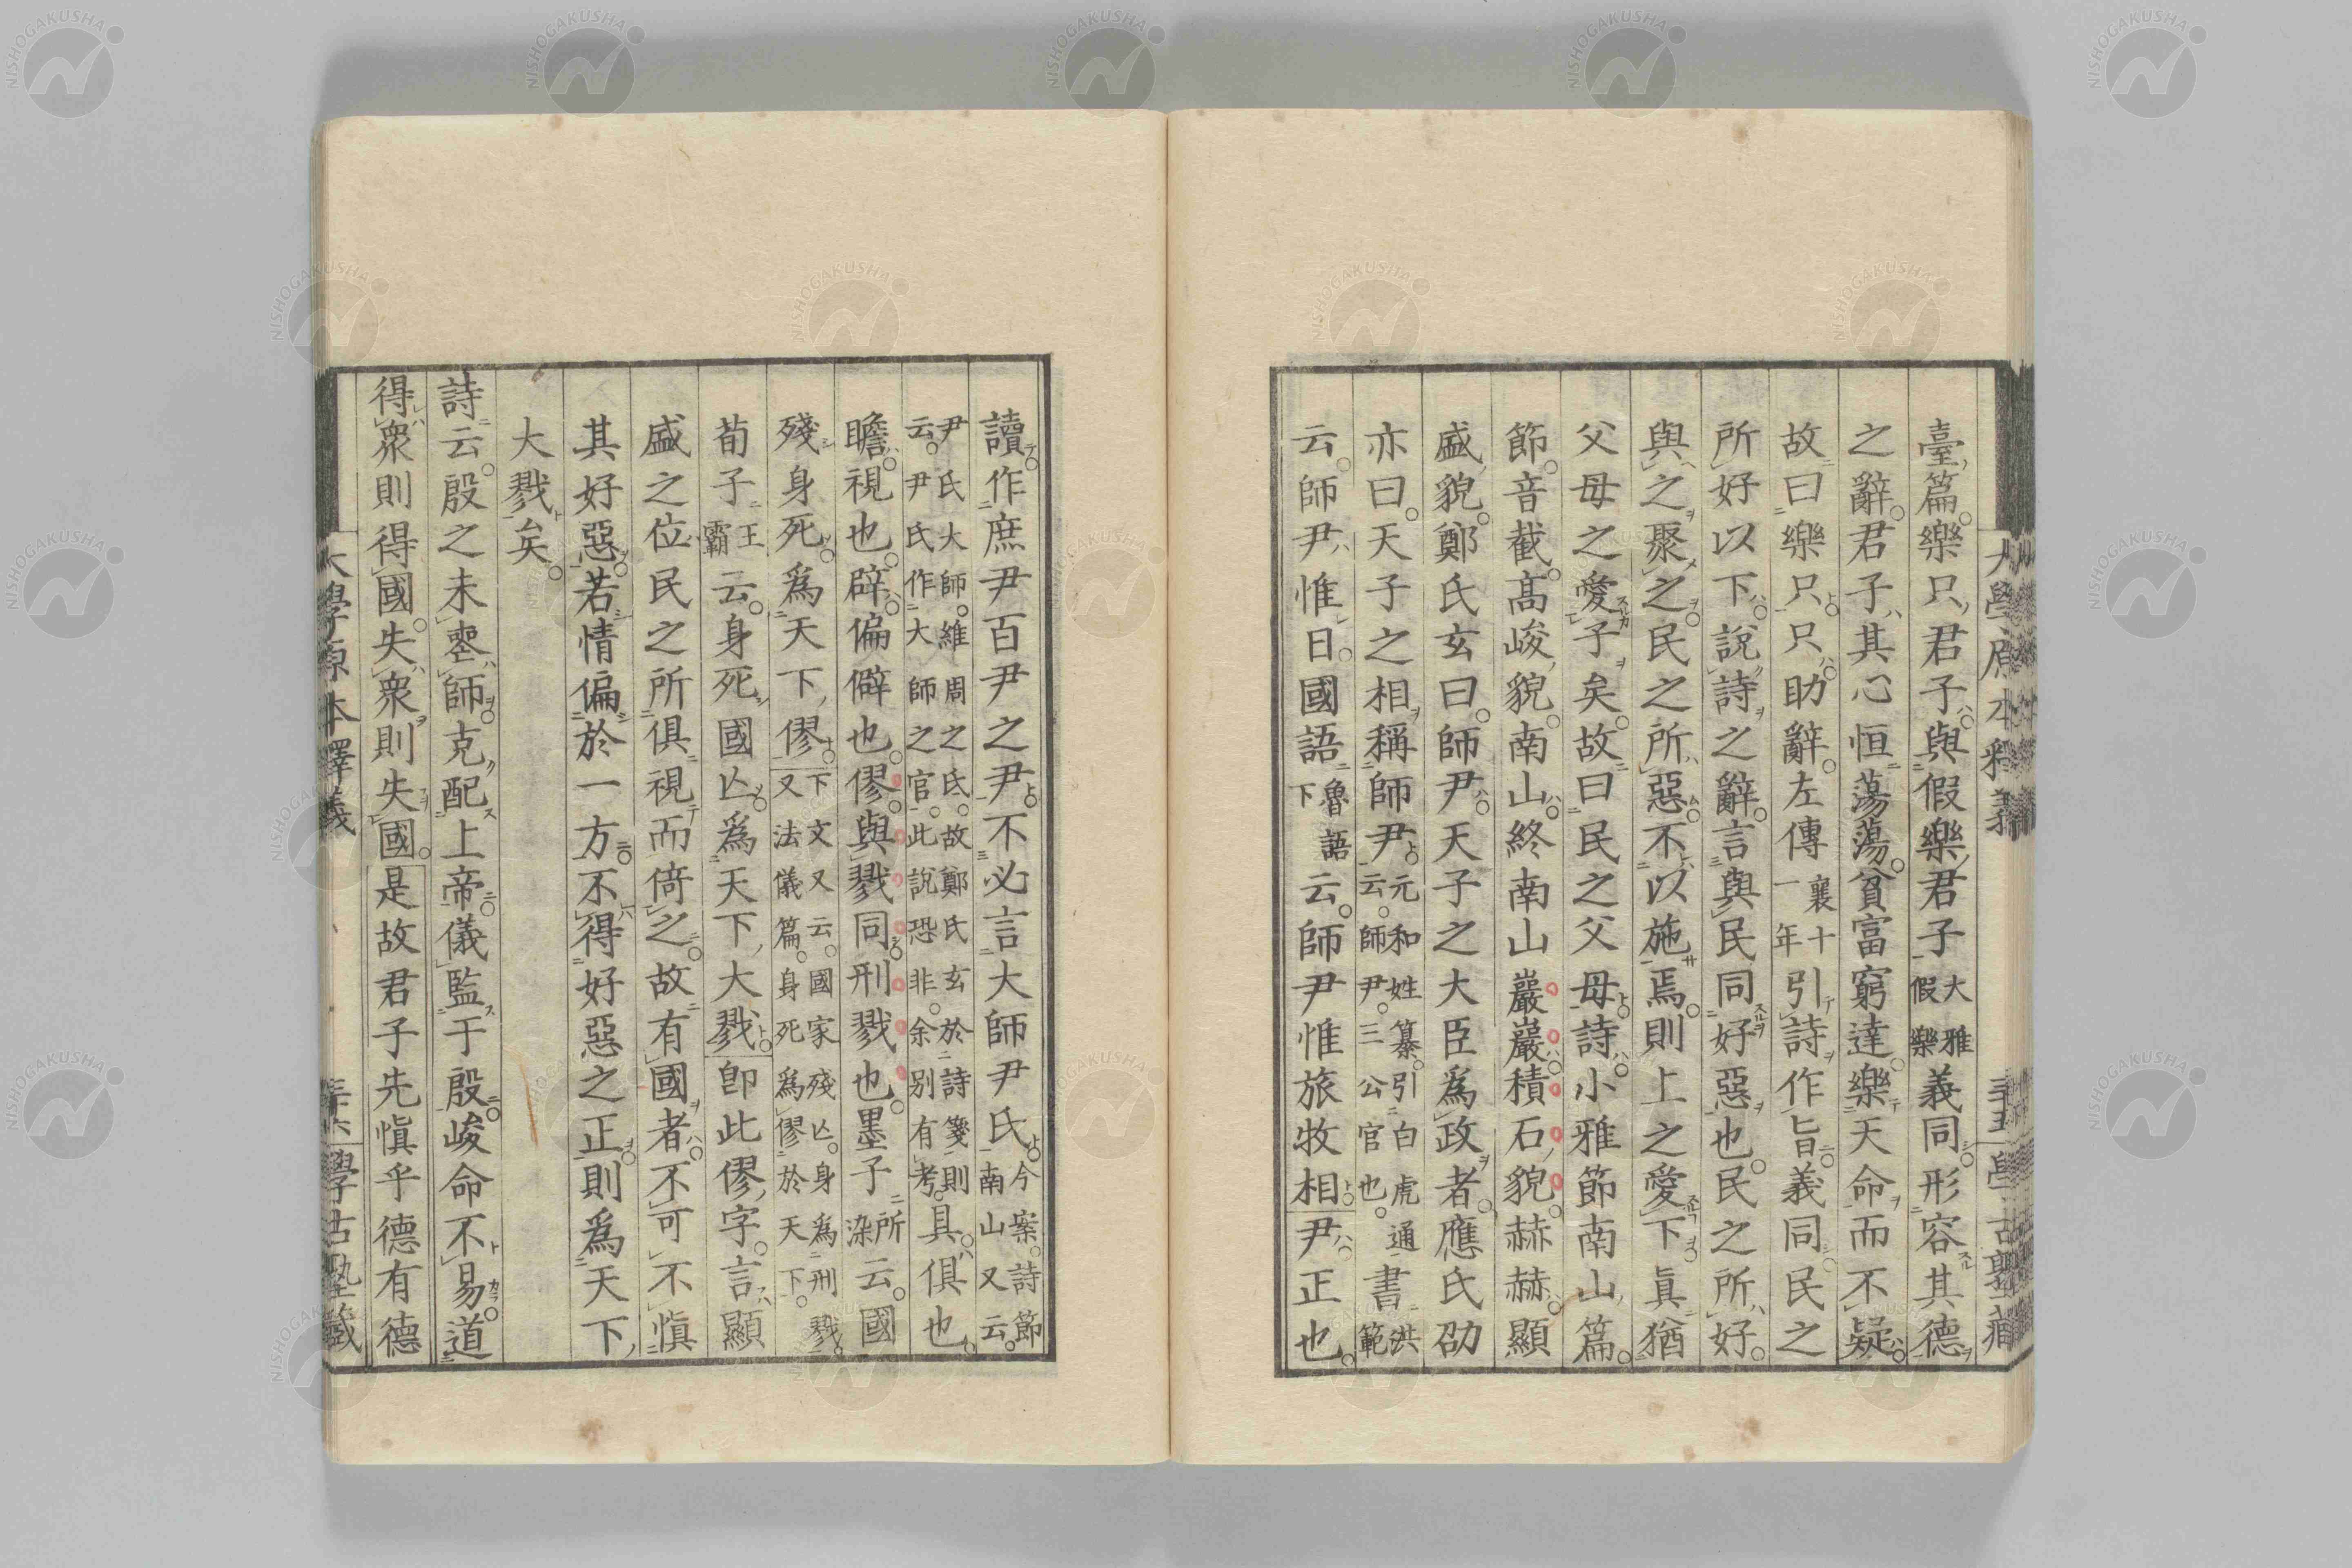 臺篇樂只君子與假樂君子大雅假樂義同形容其德
之辭君子其心恒蕩蕩貧富窮達樂天命而不疑
故曰樂只只助辭左傳襄十一年引詩作旨義同民之
所好以下說詩之辭言與民同好惡也民之所好
與之聚之民之所惡不以施焉則上之愛下眞猶
父母之愛子矣故曰民之父母詩小雅節南山篇
節音截高峻貌南山終南山巖巖積石貌赫赫顯
盛貌鄭氏玄曰師尹天子之大臣爲政者應氏劭
亦曰天子之相稱師尹元和姓纂引白虎通云師尹三公官也書洪範
云師尹惟日國語魯語下云師尹惟旅牧相尹正也
讀作庶尹百尹之尹不必言大師尹氏今案詩節南山又云
尹氏大師維周之氐故鄭氏玄於詩箋則云尹氏作大師之官此說恐非余別有考具俱也
瞻視也辟偏僻也僇與戮同刑戮也墨子所染云國
殘身死爲天下僇下文又云國家殘亾身爲刑戮又法儀篇身死爲僇於天下
荀子王霸云身死國亾爲天下大戮卽此僇字言顯
盛之位民之所俱視而倚之故有國者不可不愼
其好惡若情偏於一方不得好惡之正則爲天下
大戮矣
詩云殷之未喪師克配上帝儀監于殷峻命不易道
得衆則得國失衆則失國是故君子先愼乎德有德
大學原本釋義 三十六 學古塾藏
NISHOGAKUSHA